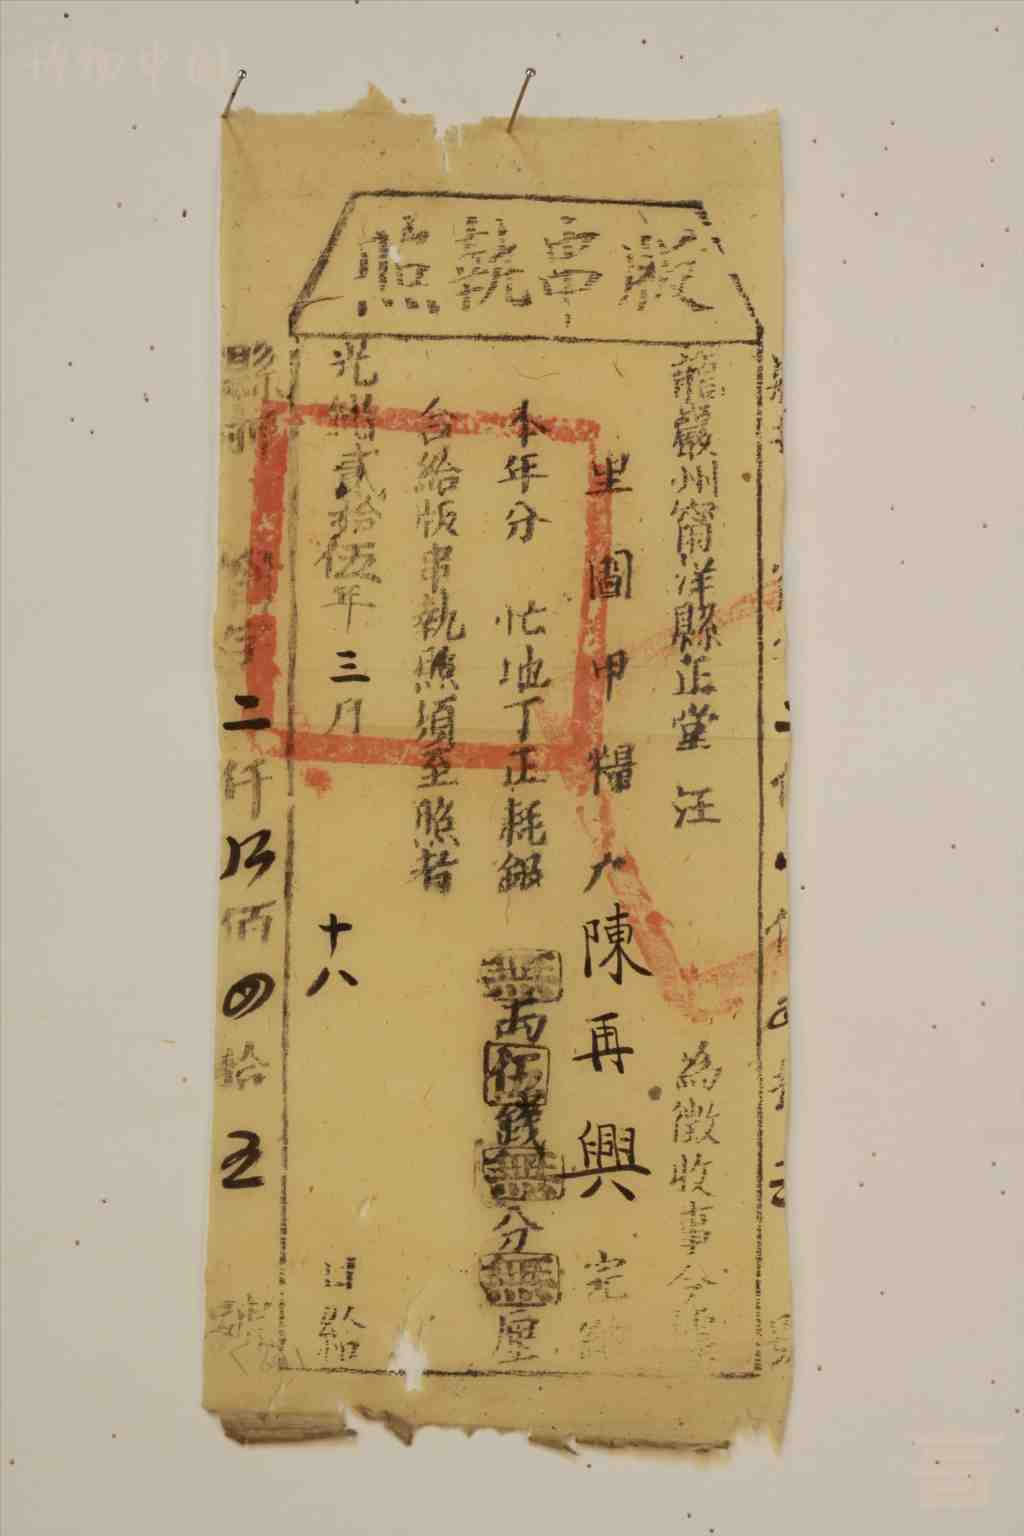 版串執照
龍巖州甯洋縣正堂 汪 為徵收事今據
里 圖 甲 糧戶 陳再興 完納
本年分 忙地丁正耗銀 無兩伍錢無分無厘
合給版串執照須至照者
光緒貳拾伍年三月 十八 日給
縣 字 二仟 佰四拾五 號
博物中国